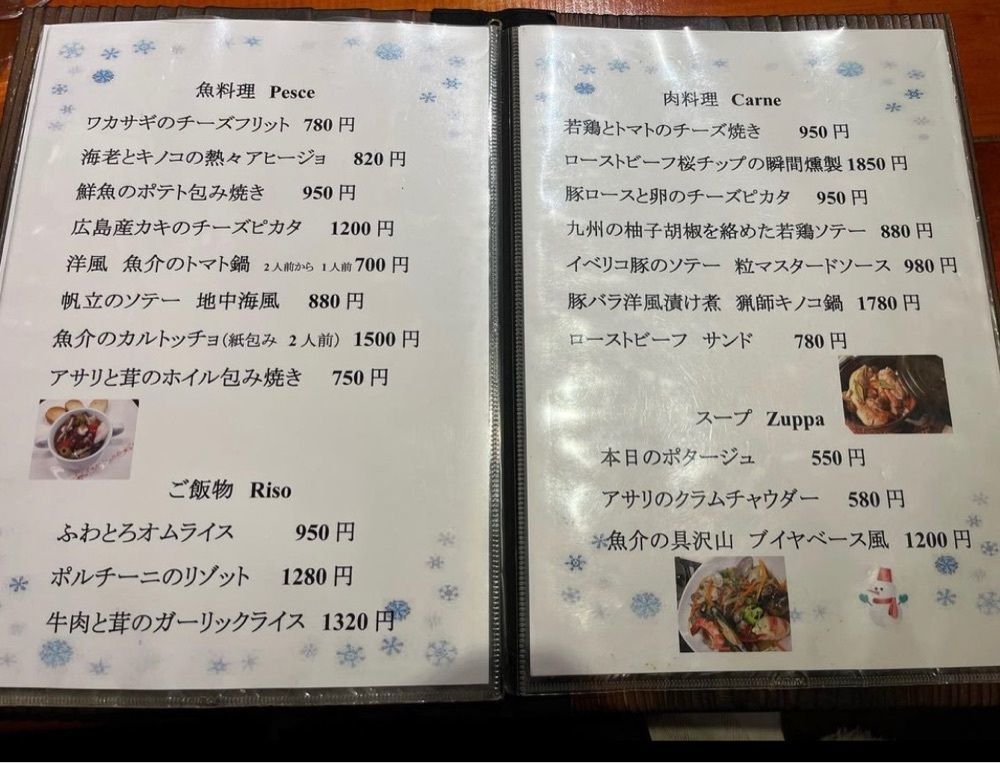 魚料理 Pesce
ワカサギのチーズフリット 780円
海老とキノコの熱々アヒージョ 820円
鮮魚のポテト包み焼き 950円
広島産カキのチーズピカタ 1200円
洋風 魚介のトマト鍋 2人前から 1人前700円
帆立のソテー 地中海風 880円
魚介のカルトッチョ(紙包み 2人前) 1500円
アサリと茸のホイル包み焼き 750円
ご飯物 Riso
ふわとろオムライス 950円
ポルチーニのリゾット 1280円
牛肉と茸のガーリックライス 1320円
肉料理 Carne
若鶏とトマトのチーズ焼き 950円
ローストビーフ桜チップの瞬間燻製1850円
豚ロースと卵のチーズピカタ 950円
九州の柚子胡椒を絡めた若鶏ソテー 880円
イベリコ豚のソテー 粒マスタードソース 980円
豚バラ洋風漬け煮 猟師キノコ鍋 1780円
ローストビーフ サンド 780円
スープ Zuppa
本日のポタージュ 550円
アサリのクラムチャウダー 580円
魚介の具沢山 ブイヤベース風 1200円